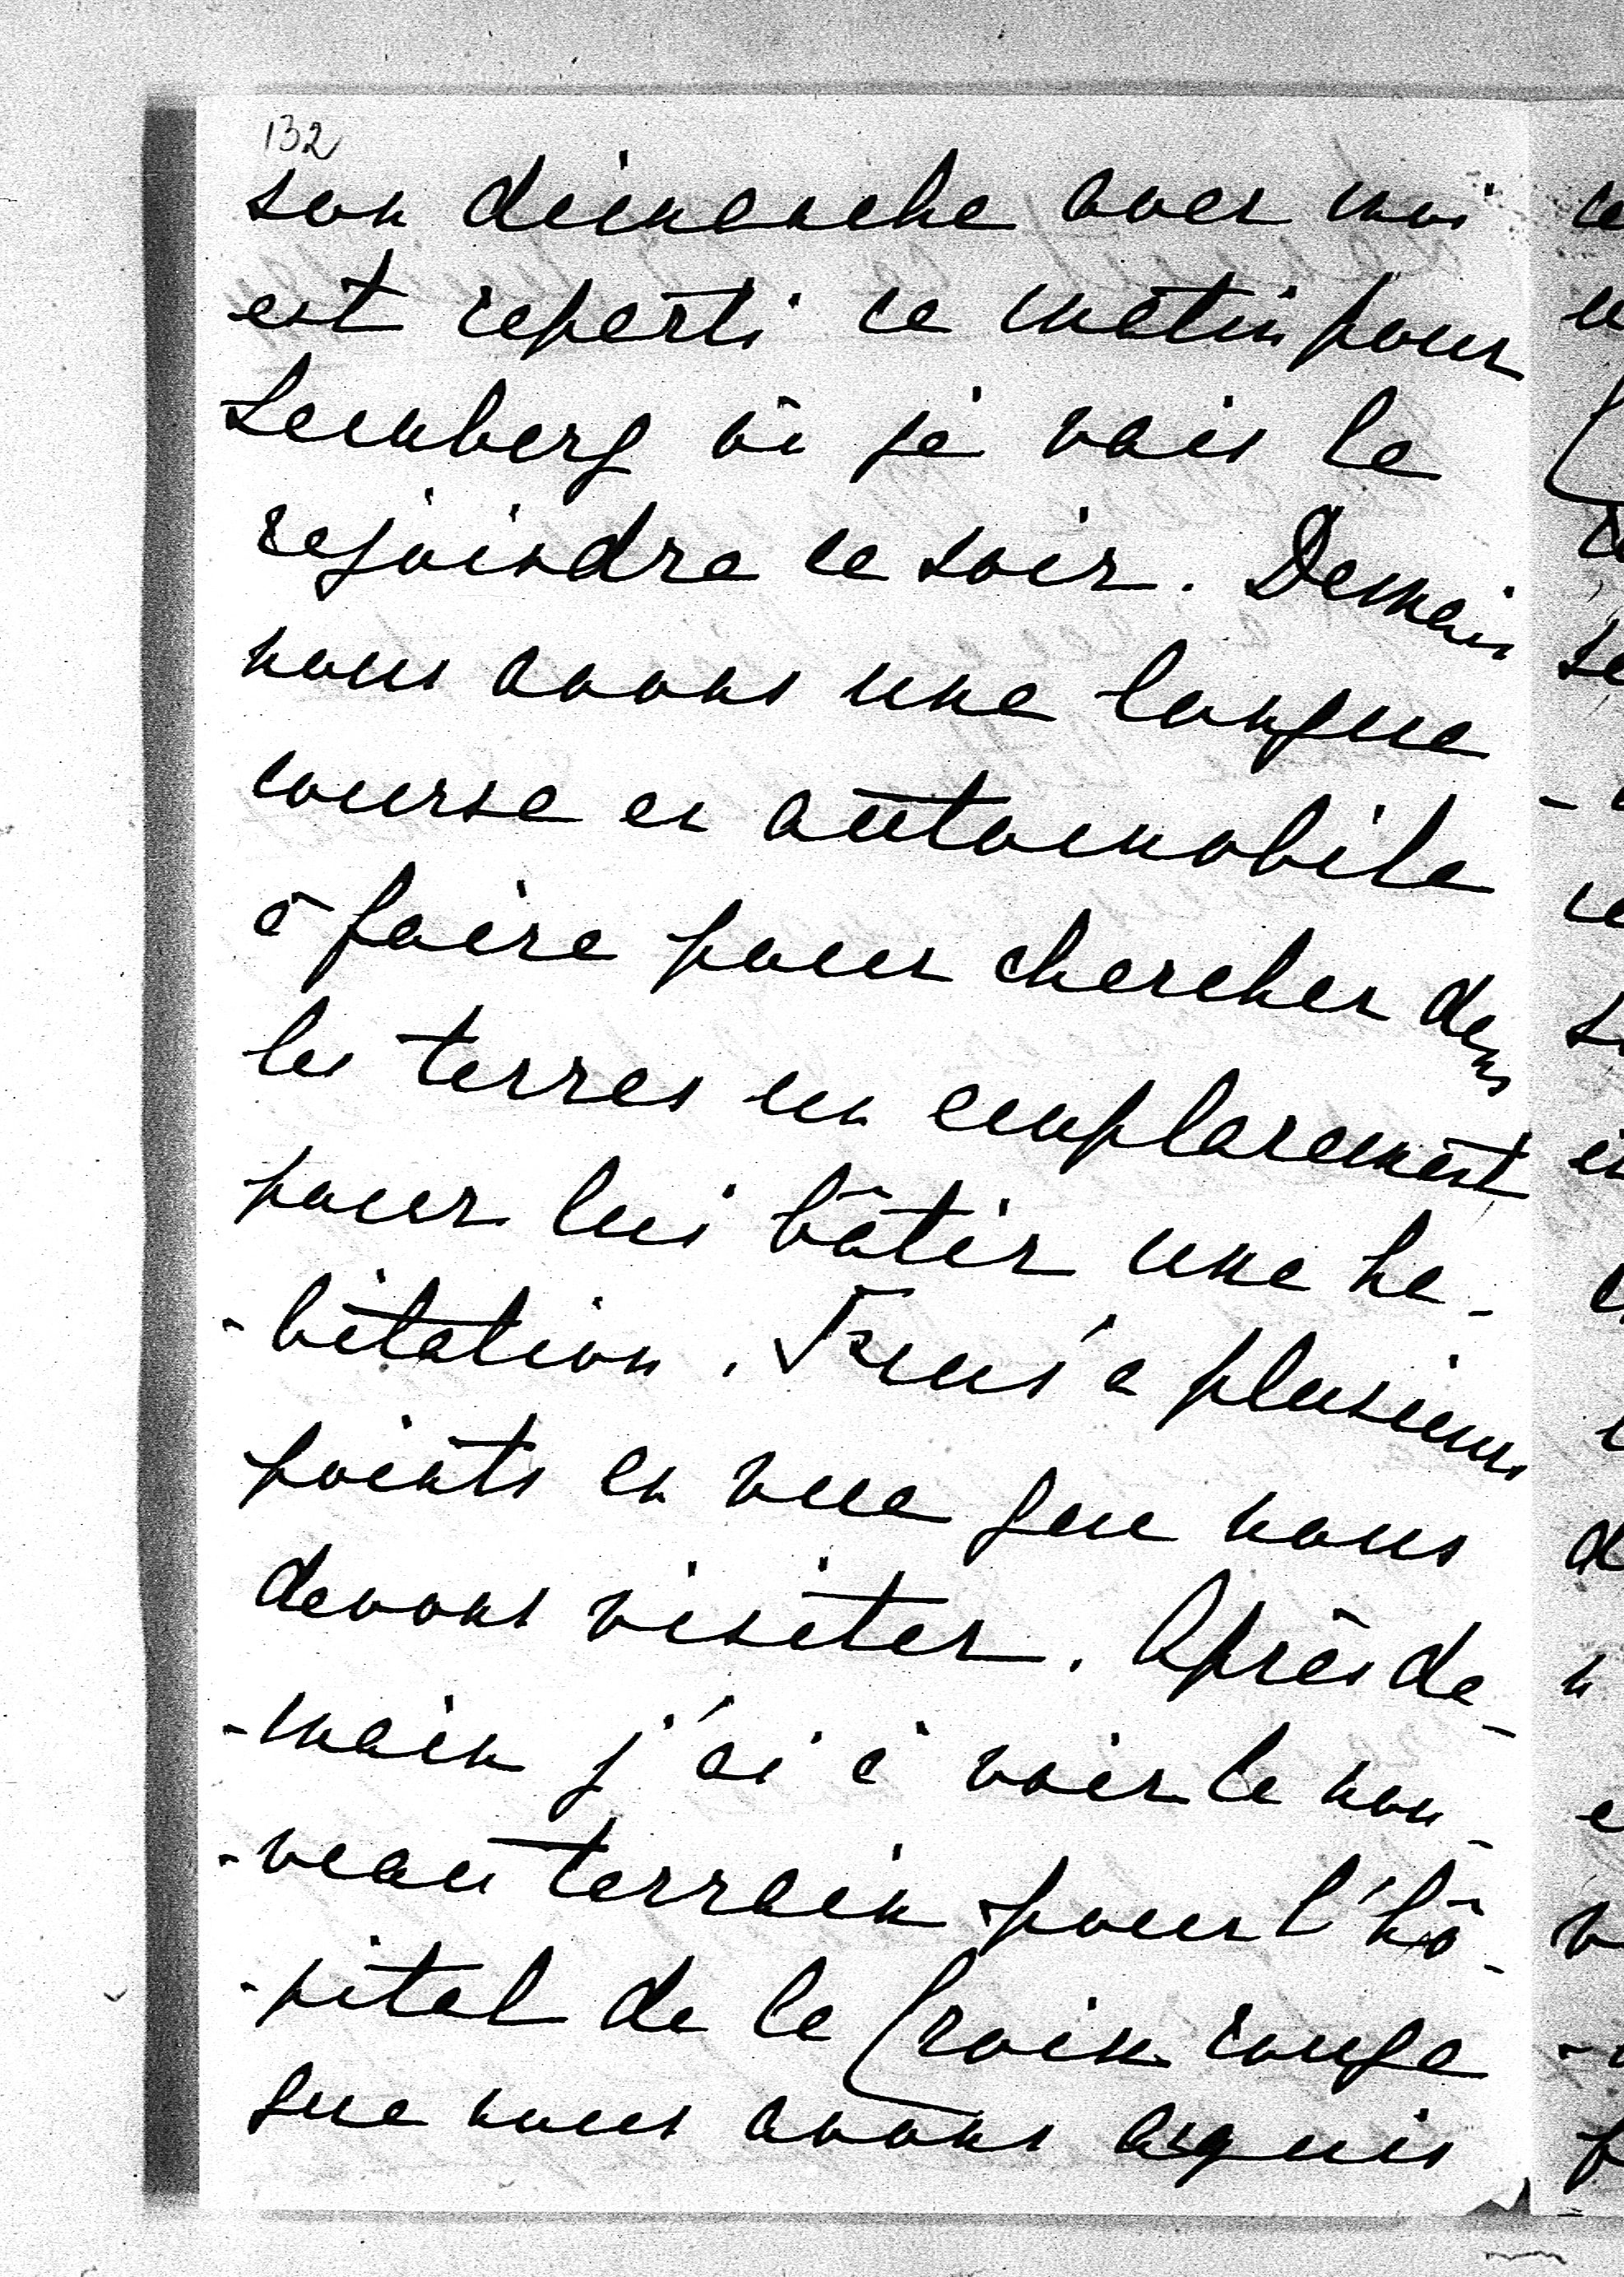 132
son dimanche avec moi
est reparti ce matin pour
Lemberg où je vais le
rejoindre ce soir. Demain
nous avons une longue
course en automobile
à faire pour chercher dans
les terres un emplacement
pour lui bâtir une ha-
-bitation. Franz a plusieurs
points en vue que nous
devons visiter. Après de-
-main j'ai à voir le nou-
-veau terrain pour l'hô-
-pital de la Croix rouge
que nous avons acquis